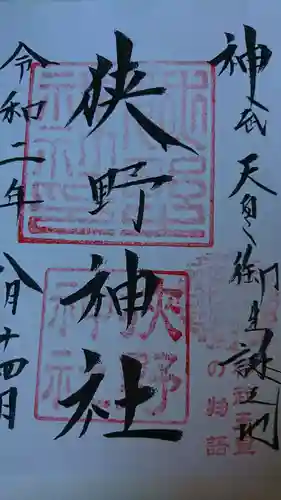 神武天皇御生誕之地
狭野神社
令和二年
八月十四日
狭野
神社
の物語